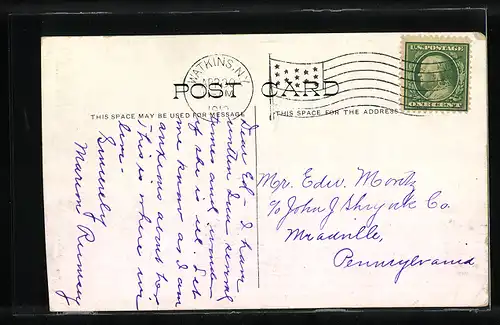 WATKINS, N.Y.
APR
M
1912
U.S. POSTAGE
ONE CENT
POST CARD
THIS SPACE MAY BE USED FOR MESSAGE
THIS SPACE FOR THE ADDRESS
Dear Ed - I have
written Dear several
times and wonder
if she is ill. Let
me know as I am
anxious about her
This is where we
live.
Sincerely
Marion J Rumsey
Mr. Edw. Moritz
c/o John J Shryock Co.
Meadville,
Pennsylvania